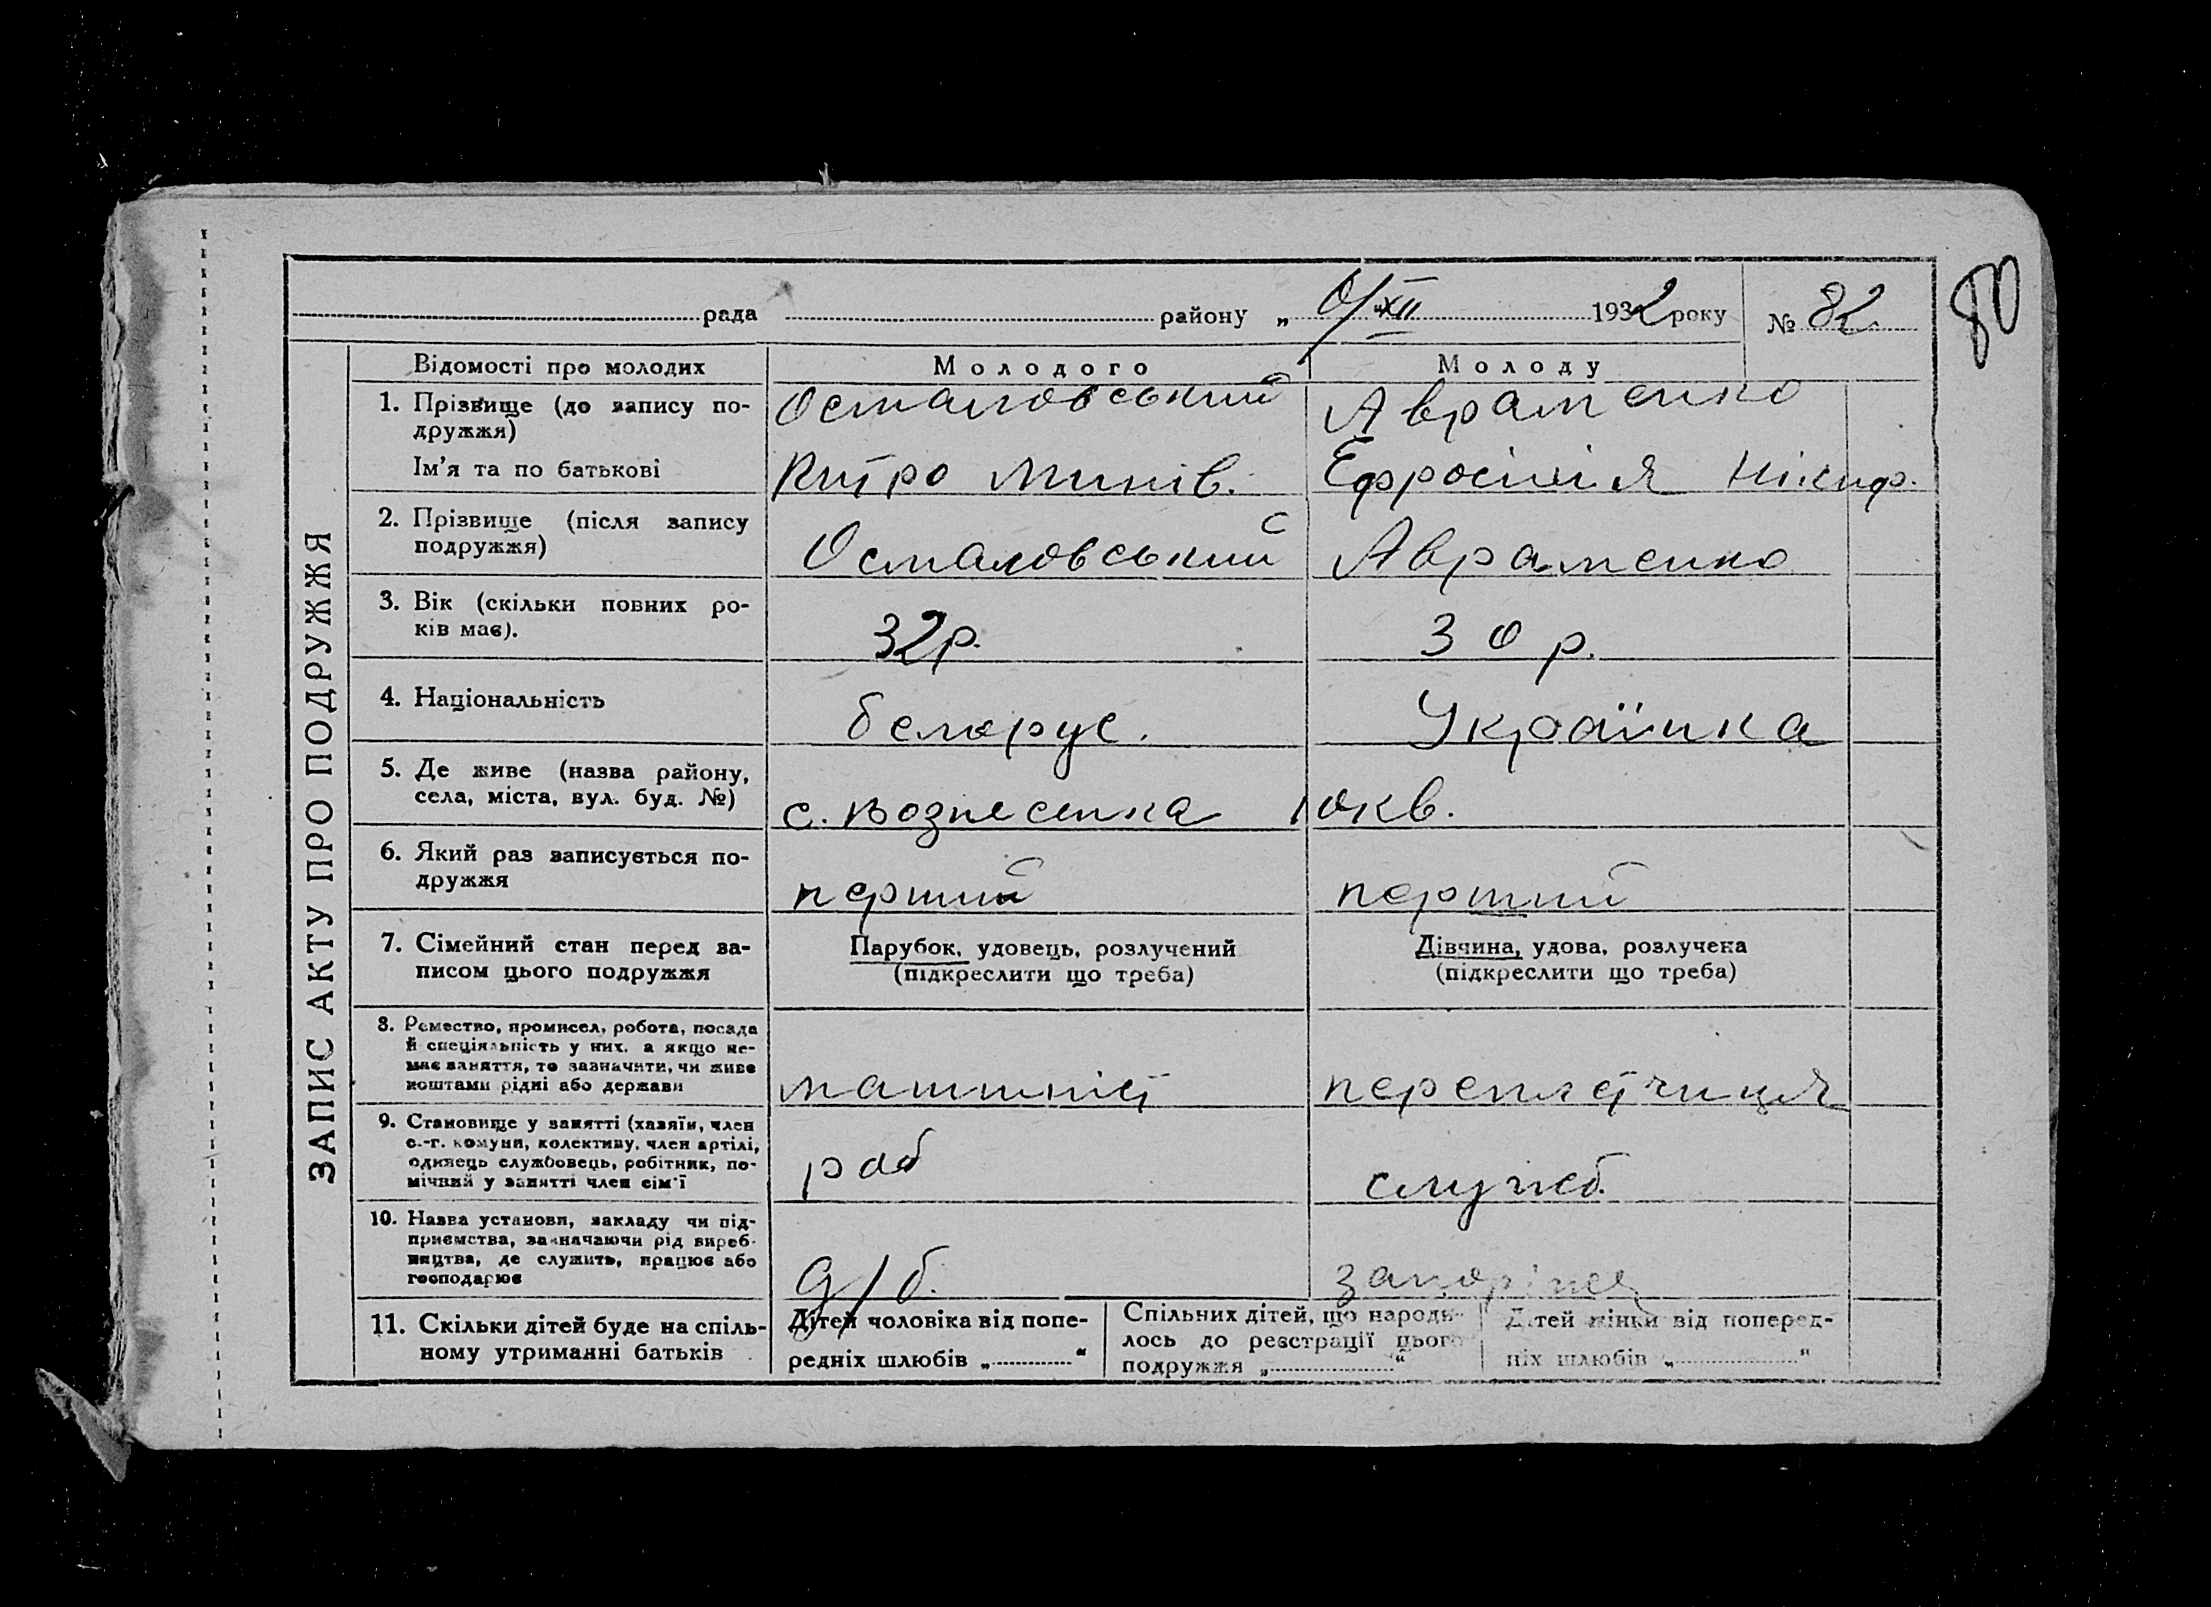 рада району „ /XII 1932 року № 82
80
ЗАПИС АКТУ ПРО ПОДРУЖЖЯ
Відомості про молодих Молодого Молоду
1. Прізвище (до запису по- Осмоловський Авраменко
дружжя)
Ім'я та по батькові Ефросінія Нікиф.
2. Прізвище (після запису
подружжя) Осмоловський Авраменко
3. Вік (скільки повних ро-
ків має). 32р. 30 р.
4. Національність белорус. Українка
5. Де живе (назва району,
села, міста, вул. буд. №) с. Вознесенка 10кв.
6. Який раз записується по-
дружжя перший перший
7. Сімейний стан перед за- Парубок, удовець, розлучений Дівчина, удова, розлучена
писом цього подружжя (підкреслити що треба) (підкреслити що треба)
8. Ремество, промисел, робота, посада
й спеціяльність у них, а якщо не-
має заняття, то зазначити, чи живе
коштами рідні або держави машиніст переплетчиця
9. Становище у занятті (хазяїн, член
с.-г. комуни, колективу, член артілі,
одинець службовець, робітник, по- раб служб.
мічний у занятті член сім'ї
10. Назва установи, закладу чи під-
приємства, зазначаючи рід вироб-
ництва, де служить, працює або
господарює д/б.
11. Скільки дітей буде на спіль- Дітей чоловіка від попе- Спільних дітей, що народи- Дітей жінки від поперед-
ному утриманні батьків редніх шлюбів „ “ лось до реєстрації цього ніх шлюбів „ “
подружжя „ “